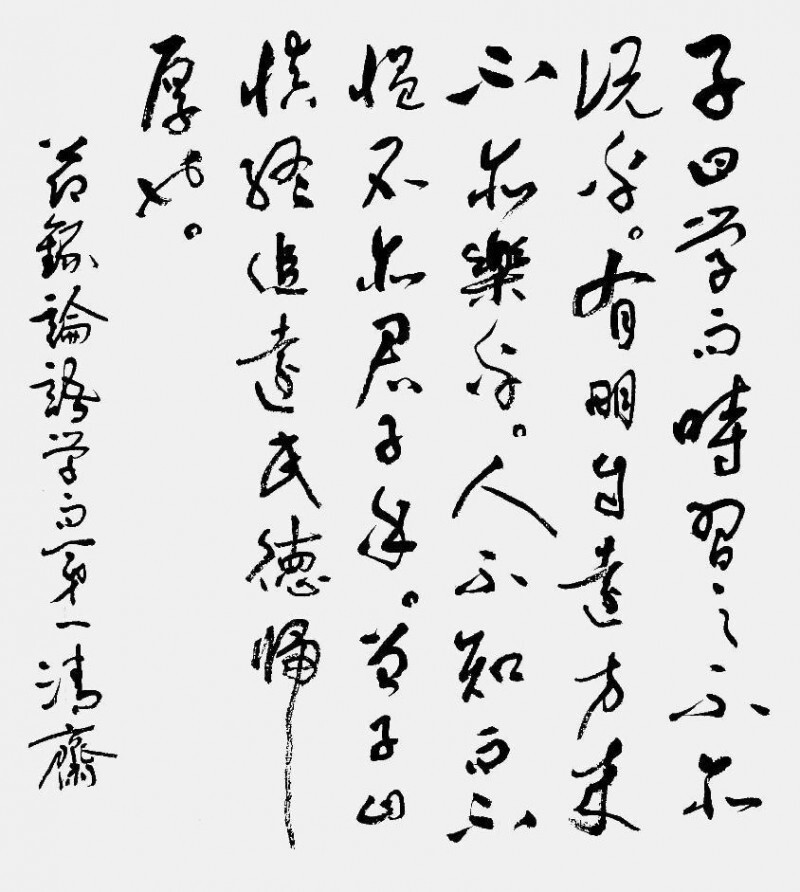 子曰学而時習之不亦
説乎。有朋自遠方来
不亦樂乎。人不知而不
慍不亦君子乎。曽子曰
慎終追遠民徳帰
厚矣。
節録論語学而第一清齋